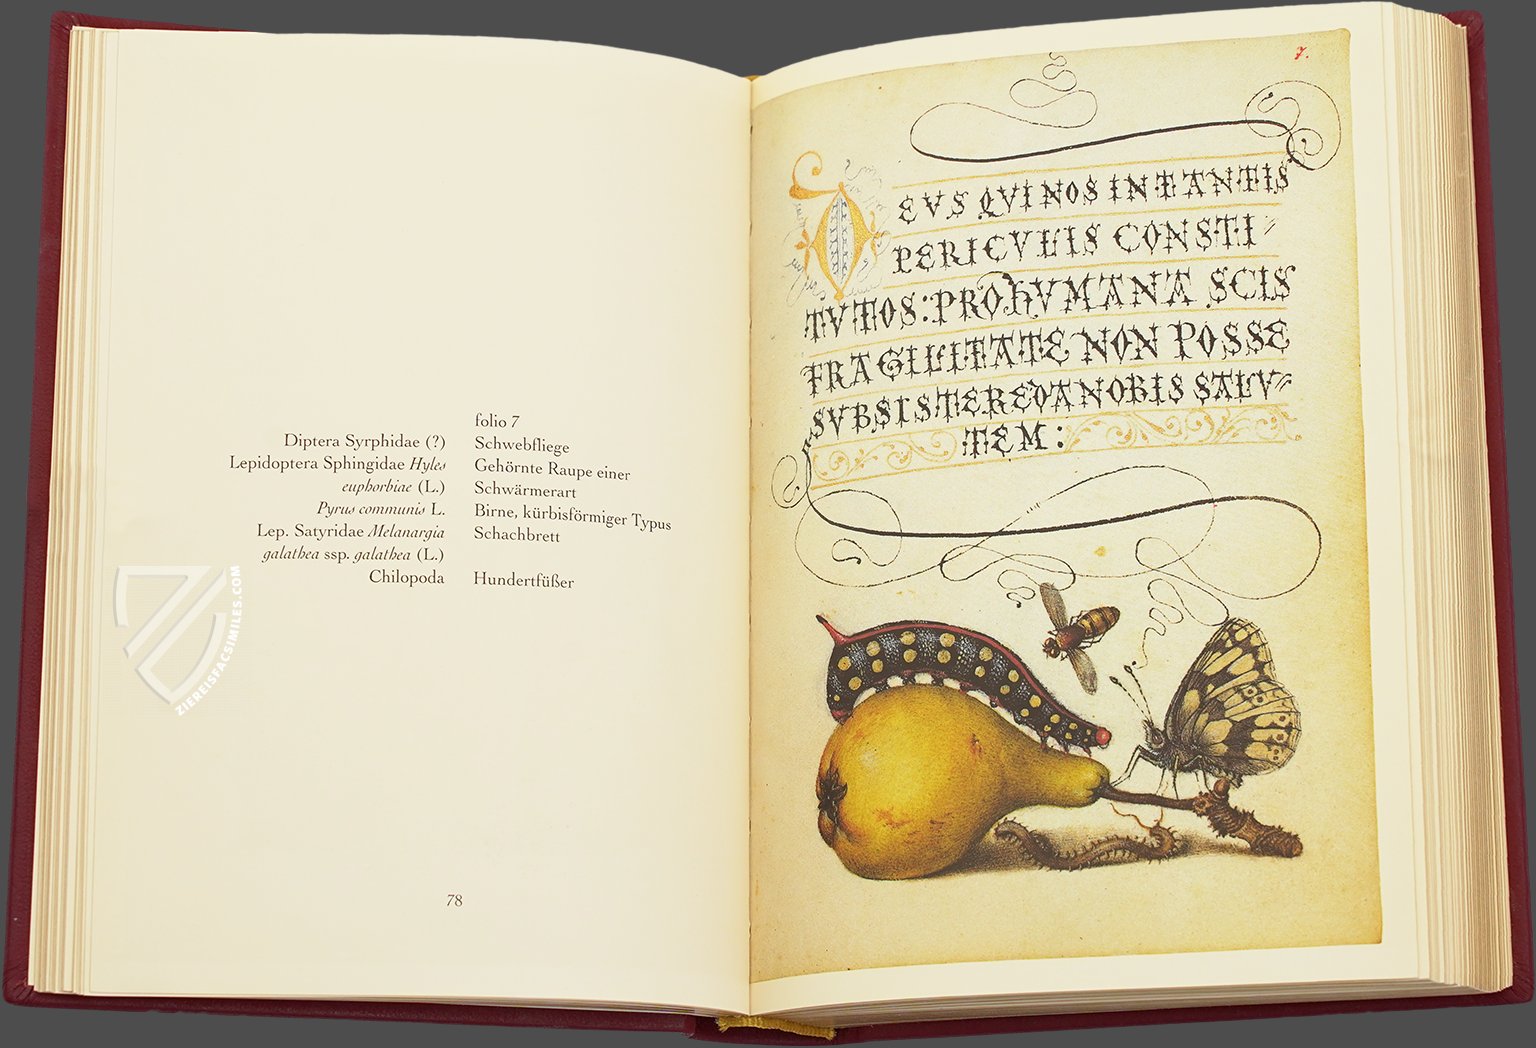 folio 7
Diptera Syrphidae (?) Schwebfliege
Lepidoptera Sphingidae Hyles Gehörnte Raupe einer
euphorbiae (L.) Schwärmerart
Pyrus communis L. Birne, kürbisförmiger Typus
Lep. Satyridae Melanargia Schachbrett
galathea ssp. galathea (L.)
Chilopoda Hundertfüßer
78
ZIEREISFACSIMILES.COM
7.
DEVS QVI NOS IN TANTIS
PERICVLIS CONSTI=
TVTOS: PRO HVMANA SCIS
FRAGILITATE NON POSSE
SVBSISTERE DA NOBIS SALV=
TEM: